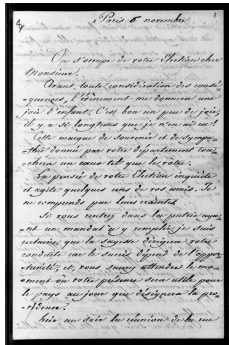 Paris 6 novembre
On s'occupe de votre Election cher
Monsieur.
Avant toute considération des consé-
quences, l'évènement me donnera une
joie d'enfant. C'est bon un peu de joie,
il y a si longtemps que je n'en ai eu!
Cette marque de Souvenir et de sympa-
thie donné par votre département tou-
chera un cœur tel que le votre.
La pensée de votre Election inquiète
et agite quelques uns de vos amis. Je
ne comprends pas leurs craintes.
Si vous rentrez dans la patrie
et un mandat à y remplir je suis
certaine que la sagesse dirigera votre
conduite car le succès dépend de l'oppor-
tunité; et, vous saurez attendre le mo-
ment où votre présence sera utile pour
le pays au jour que désignera la pro-
vidence!
hier au soir la réunion de la rue